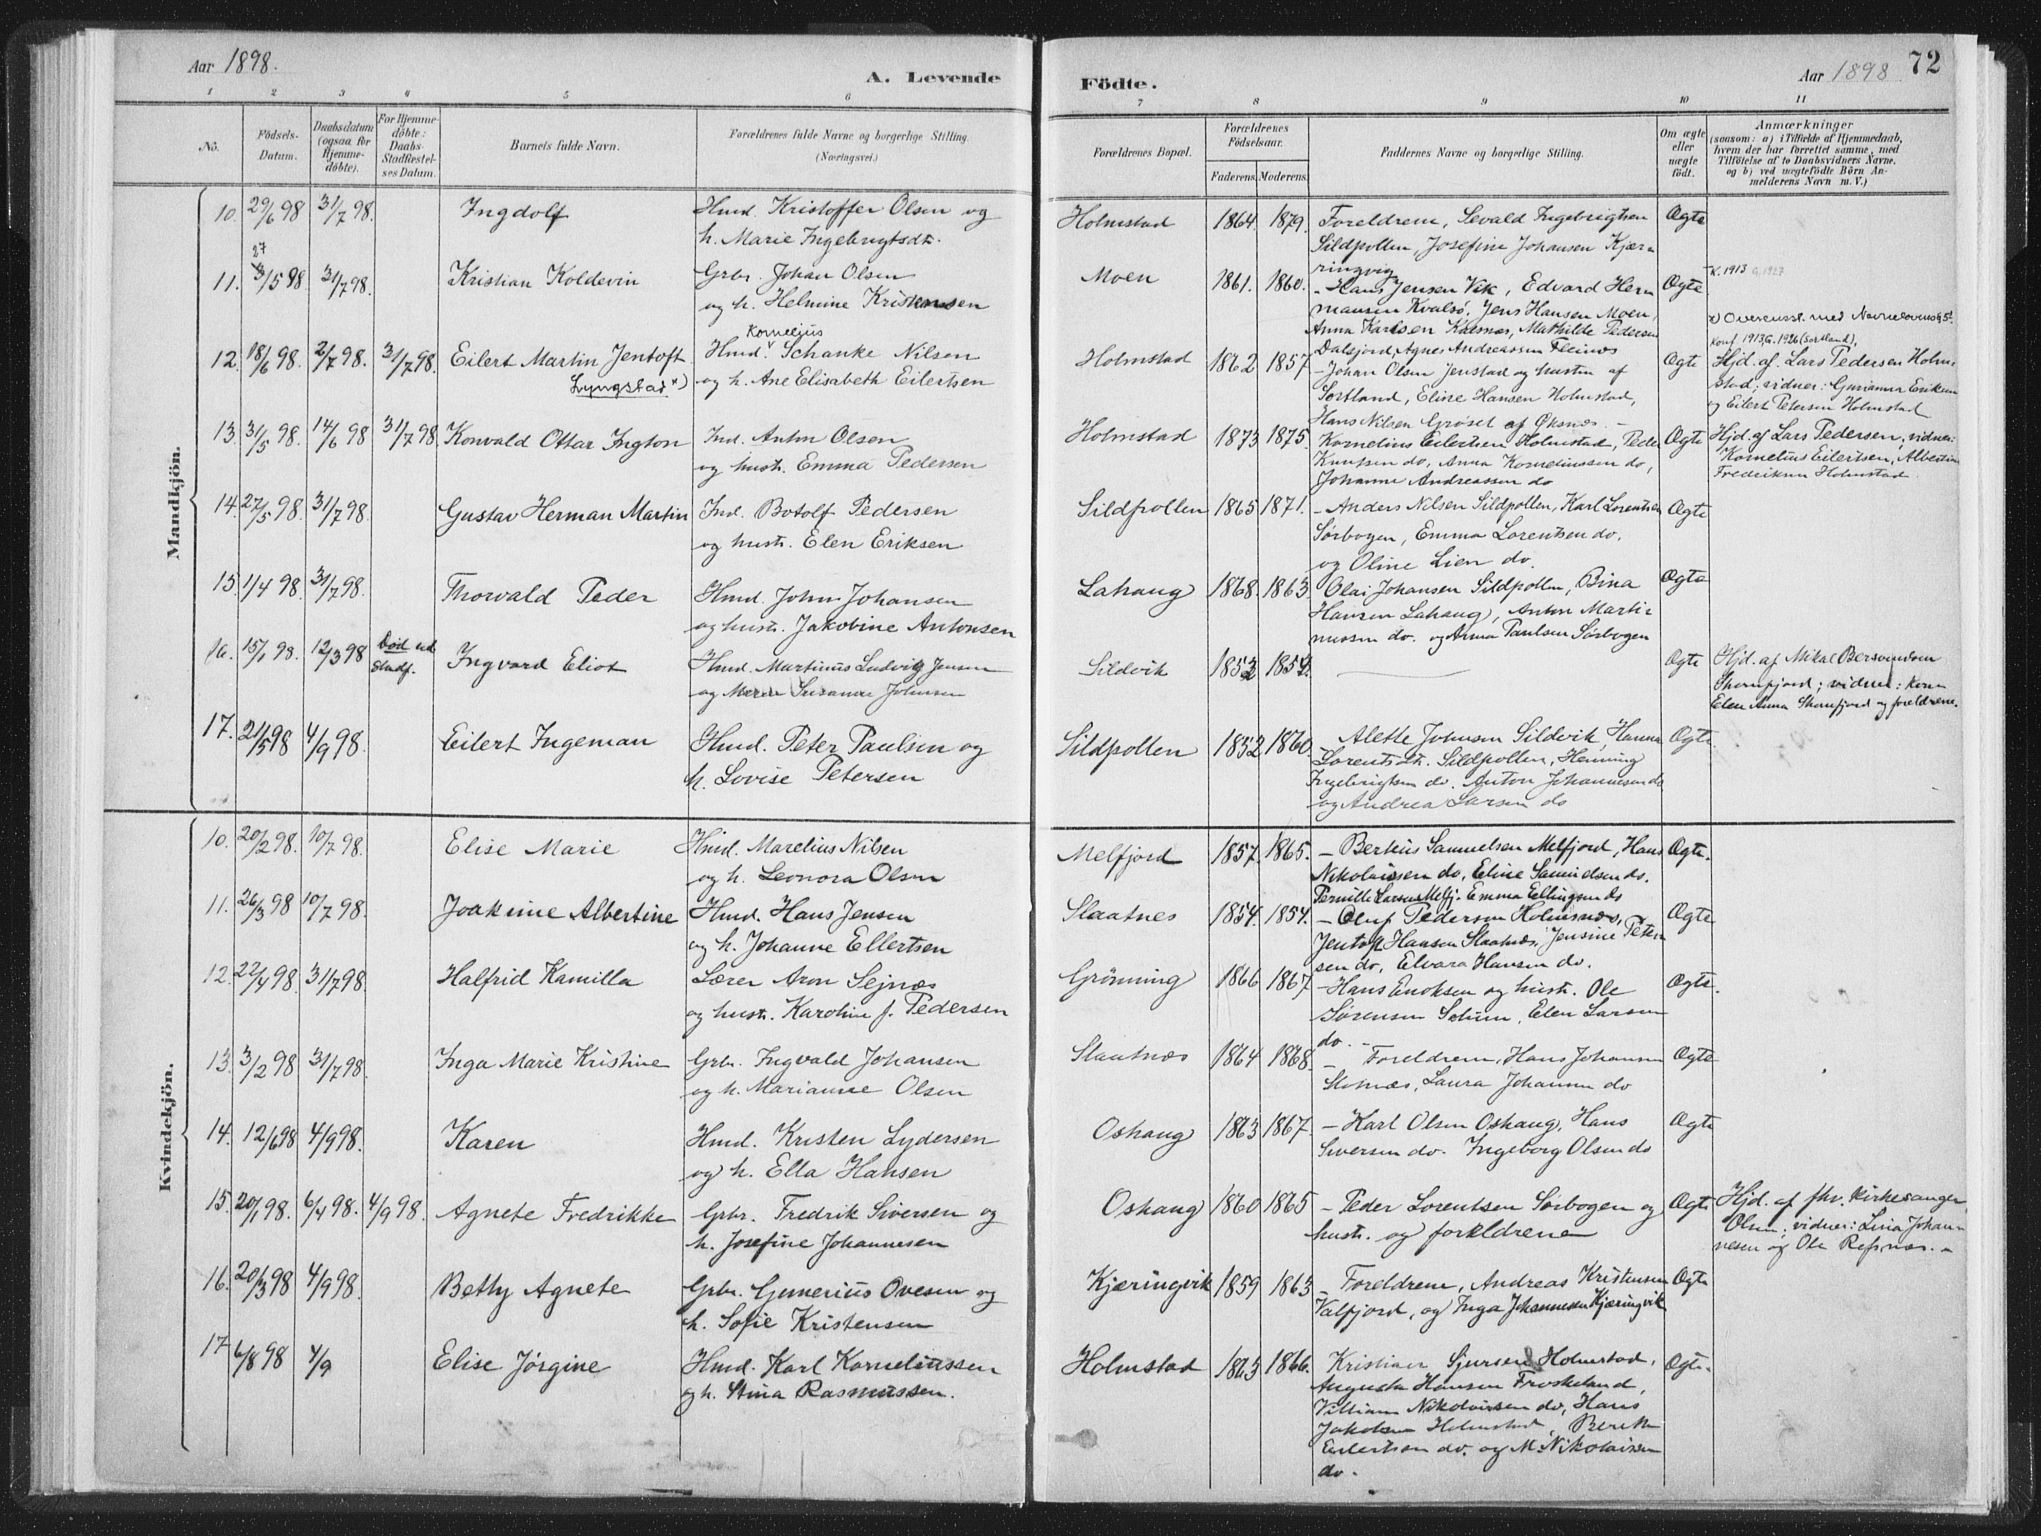 Aar 1898.
A. Levende
Födte.
Aar 1898
72
1 2 3 4 5 6 7 8 9 10 11
No.
Födsels-Datum.
Daabsdatum (ogsaa for Hjemme-döbte).
For Hjemme-döbte: Daabs-Stadfæstel-ses Datum.
Barnets fulde Navn.
Forældrenes fulde Navne og borgerlige Stilling.
(Næringsvei.)
Forældrenes Bopæl.
Forældrenes Födselsaar.
Faderens. Moderens.
Faddernes Navne og borgerlige Stilling.
Om ægte eller uægte födt.
Anmærkninger
(saasom: a) i Tilfælde af Hjemmedaab,
hvem der har forrettet samme, med
Tilföielse af to Daabsvidners Navne.
og b) ved uægtefödte Börn An-
melderens Navn m. V.)
Mandkjön.
10. 29/6 98 31/7 98. Ingdolf Hmd. Kristoffer Olsen og Holmstad 1864. 1879. Foreldrene, Sevald Ingebrigtsen Ægte
h. Marie Ingebrigtsdt. Sildpollen, Josefine Johansen Kjæ-
ringvig
27
11. 3/5 98. 31/7 98. Kristian Koldevin Grbr. Johan Olsen Moen 1861. 1860. - Hans Jensen Vik, Edvard Her- Ægte K. 1913 G. 1927
og h. Helmine Kristensen mansen Kvalsö, Jens Hansen Moen,
Anna Karlsen Kalsnæs, Mathilde Pedersen
x) Overensst. med Navnelovens § 5.
Kornelius
Dalsjord, Agnes Andreassen Fleines
Konf 1913, G. 1926 (Sortland).
12. 18/6 98. 2/7 98. 31/7 98. Eilert Martin Jentoft Hmd. Schanke Nilsen Holmstad 1862 1857 - Johan Olsen Jenstad og hustru af Ægte Hjd. af Lars Pedersen Holm-
Lyngstad x) og h. Ane Elisabeth Eilertsen Sortland, Eline Hansen Holmstad, stad; vidner: Eriksen
Hans Nilsen Grøset af Øksnes. - og Eilert Petersen Holmstad
13. 31/5 98. 14/6 98 31/7 98. Konvald Ottar Ington Ind. Anton Olsen Holmstad 1873 1875. Kornelius Eilertsen Holmstad, Peder Ægte Hjd. af Lars Pedersen, vidner:
og hustr. Emma Pedersen Knutsen do, Anna Korneliussen do, Kornelius Eilertsen, Albertine
Johanne Andreassen do Fredriksen Holmstad
14. 27/5 98. 31/7 98. Gustav Herman Martin Ind. Botolf Pedersen Sildpollen 1865 1871. - Anders Nilsen Sildpollen, Karl Lorentsen Ægte
og hustr. Elen Eriksen Sørbogen, Emma Lorentsen do,
og Oline Lien do.
15 1/4 98. 31/7 98. Thorvald Peder Hmd. John Johansen Lahaug 1868. 1863. Olai Johansen Sildpollen, Bina Ægte
og hustr. Jakobine Antonsen Hansen Lahaug, Anton Marti-
nussen do. og Anna Paulsen Sørbogen
16. 15/1 98. 12/3 98 Död ud Stadf. Ingvard Eliot Hmd. Martinus Ludvig Jensen Sildvik 1853 1852. Ægte Hjd. af Mikal Bersvendsen
og Susanna Johnsen ; vidner:
Elen Anna og foreldrene.
17. 21/5 98 4/9 98. Eilert Ingeman Hmd. Peter Paulsen og Sildpollen 1852 1860. - Alette Johnsen Sildvik, Hanna Ægte
h. Lovise Petersen Lorentsdt. Sildpollen, Henning
Ingebrigtsen do. Anton Johannesen do
og Andrea Larsen do
Kvindekjön.
10. 20/2 98. 10/7 98. Elise Marie Hmd. Marelius Nilsen Melfjord 1857. 1865. - Berkus Samuelsen Melfjord, Hans Ægte.
og h. Leonora Olsen Nikolaisen do, Eline Samuelsen do.
Pernille Larsen Melfj. Emma Ellingsen do
11. 26/3 98 10/7 98. Joakime Albertine Hmd. Hans Jensen Slaatnes 1854. 1854. - Oluf Pedersen Holmsnæs, Ægte
og h. Johanne Ellertsen Jentoft Hansen Slaatnæs, Jensine Peter-
sen do, Elvara Hansen do.
12. 22/4 98. 31/7 98. Halfrid Kamilla Lærer Aron Sejnæs Grönning 1866 1867 - Hans Enoksen og hustr. Ole Ægte.
og hustr. Karoline f. Pedersen Sørensen, Elen Larsen
do. -
13. 3/2 98 31/7 98. Inga Marie Kristine Grbr. Ingvald Johansen Slaatnæs 1864 1868. - Foreldrene, Hans Johansen Ægte
og h. Marianne Olsen Laura Johansen do
14. 12/6 98 4/9 98. Karen Hmd. Kristen Lydersen Oshaug 1863 1867. - Karl Olsen Oshaug, Hans Ægte
og h. Ella Hansen Siversen do. Ingeborg Olsen do
15. 20/1 98. 6/4 98. 4/9 98. Agnete Fredrikke Grbr. Fredrik Siversen og Oshaug 1860 1865 - Peder Lorentsen Sørbogen og Ægte Hjd. af fhv. kirkesanger
h. Josefine Johannesen hustr. og foreldrene Olsen; vidner: Lina Johan-
nesen og Ole Refsnæs. -
16. 20/3 98 4/9 98. Betty Agnete Grbr. Gunerius Ovesen og Kjæringvik 1859 1863 - Foreldrene, Andreas Kristensen Ægte
h. Sofie Kristensen Valfjord, og Inga Johannesen Kjæringvik
17 6/8 98 4/9 Elise Jørgine Hmd. Karl Korneliussen Holmstad 1863 1866. Kristian Sjursen Holmstad, Ægte.
og h. Stina Rasmussen. Augusta Hansen Froskeland,
Villiam Nikolaisen do, Hans
Jakobsen Holmstad,
Eilertsen do. og M. Nikolaisen
do.